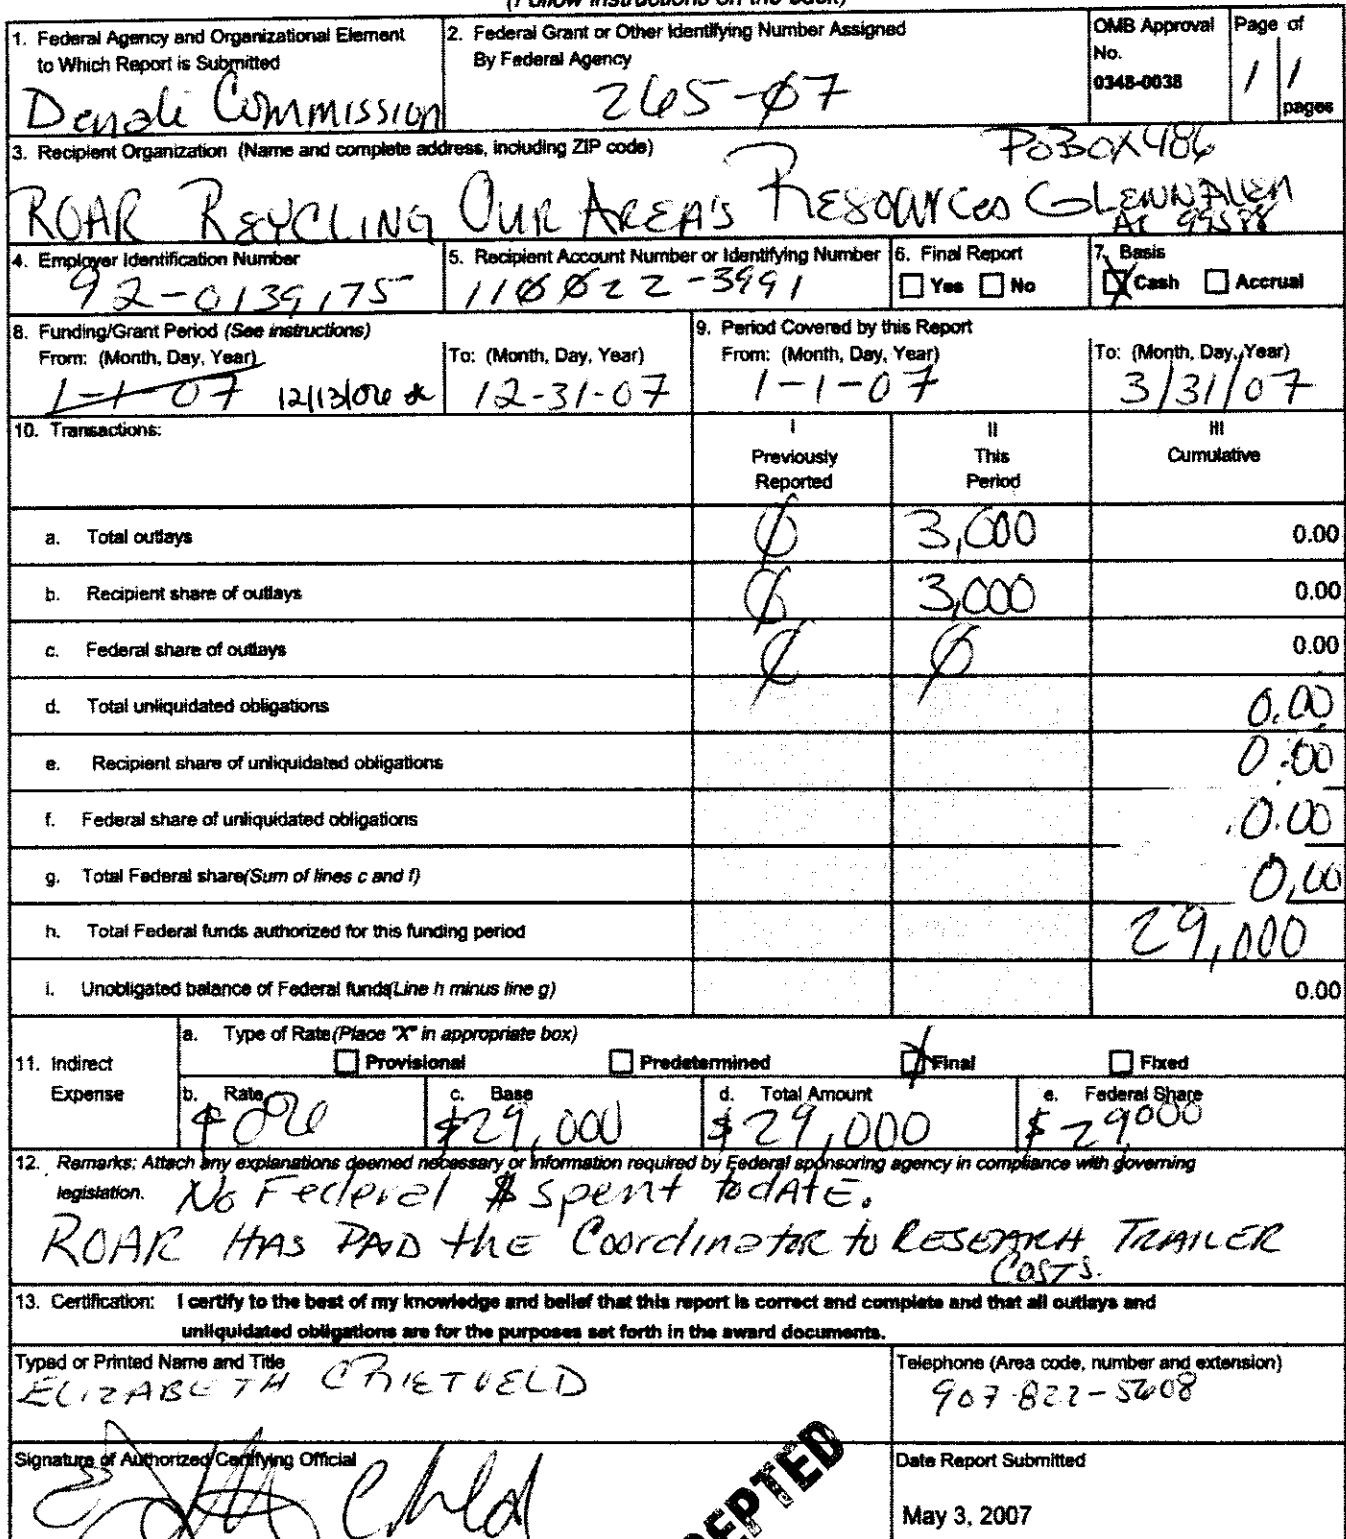 (Follow instructions on the back)
1. Federal Agency and Organizational Element
to Which Report is Submitted
Denali Commission
2. Federal Grant or Other Identifying Number Assigned
By Federal Agency
265-07
OMB Approval
No.
0348-0038
Page of
1 1
pages
3. Recipient Organization (Name and complete address, including ZIP code)
PO BOX 486
ROAR RECYCLING OUR AREA'S RESOURCES GLENNALLEN
AK 99588
4. Employer Identification Number
92-0139175
5. Recipient Account Number or Identifying Number
110022-3991
6. Final Report
Yes No
7. Basis
X Cash Accrual
8. Funding/Grant Period (See instructions)
From: (Month, Day, Year)
1-1-07 12/13/06
To: (Month, Day, Year)
12-31-07
9. Period Covered by this Report
From: (Month, Day, Year)
1-1-07
To: (Month, Day, Year)
3/31/07
10. Transactions:
I
Previously
Reported
II
This
Period
III
Cumulative
a. Total outlays 0 3,000 0.00
b. Recipient share of outlays 0 3,000 0.00
c. Federal share of outlays 0 0 0.00
d. Total unliquidated obligations 0.00
e. Recipient share of unliquidated obligations 0.00
f. Federal share of unliquidated obligations 0.00
g. Total Federal share(Sum of lines c and f) 0.00
h. Total Federal funds authorized for this funding period 29,000
i. Unobligated balance of Federal funds(Line h minus line g) 0.00
11. Indirect
Expense
a. Type of Rate(Place "X" in appropriate box)
Provisional Predetermined X Final Fixed
b. Rate c. Base d. Total Amount e. Federal Share
$29,000 $29,000 $29000
12. Remarks: Attach any explanations deemed necessary or information required by Federal sponsoring agency in compliance with governing
legislation. No Federal $ spent to dATE.
ROAR HAS PAID tHE Coordinator to RESEARCH TRAILER
COSTS.
13. Certification: I certify to the best of my knowledge and belief that this report is correct and complete and that all outlays and
unliquidated obligations are for the purposes set forth in the award documents.
Typed or Printed Name and Title
ELIZABETH C RIETVELD
Telephone (Area code, number and extension)
907-822-5608
Signature of Authorized Certifying Official
Date Report Submitted
May 3, 2007